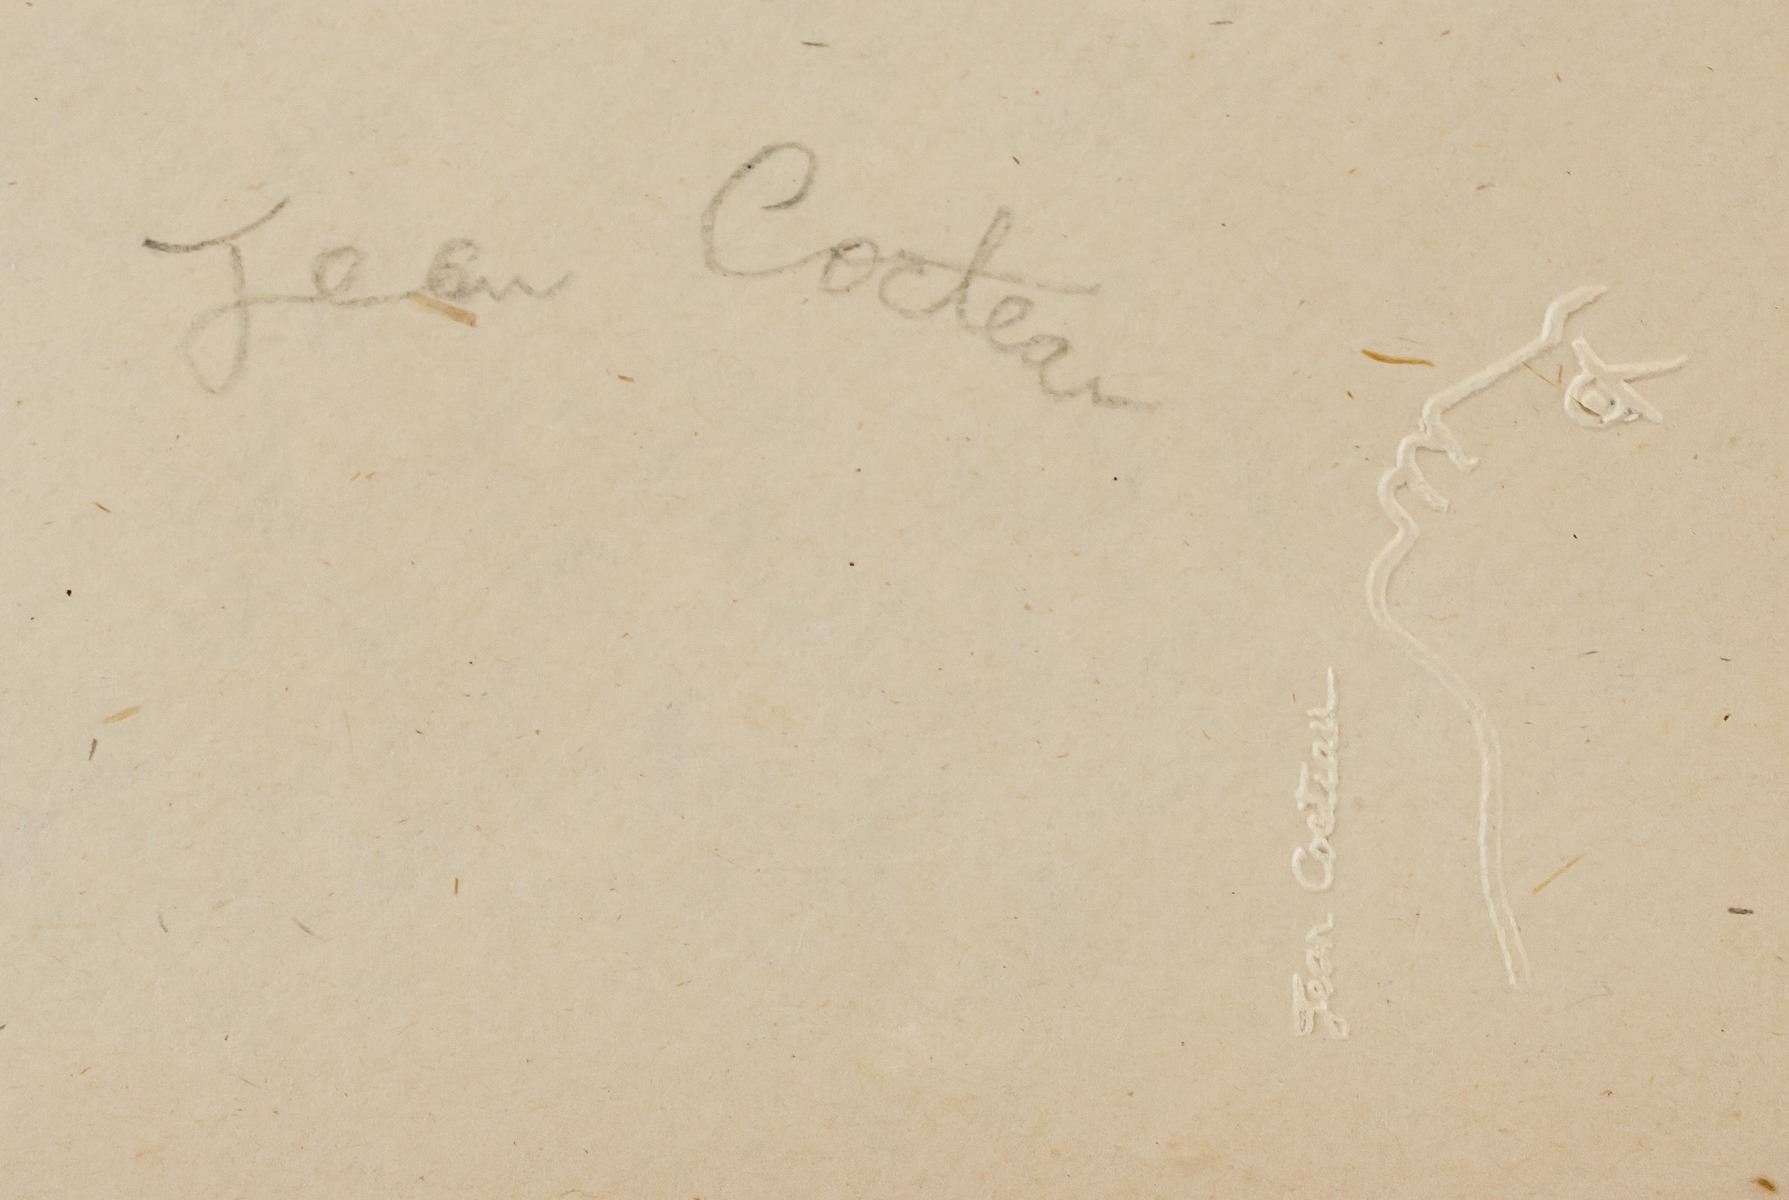 Jean Cocteau
Jean Cocteau